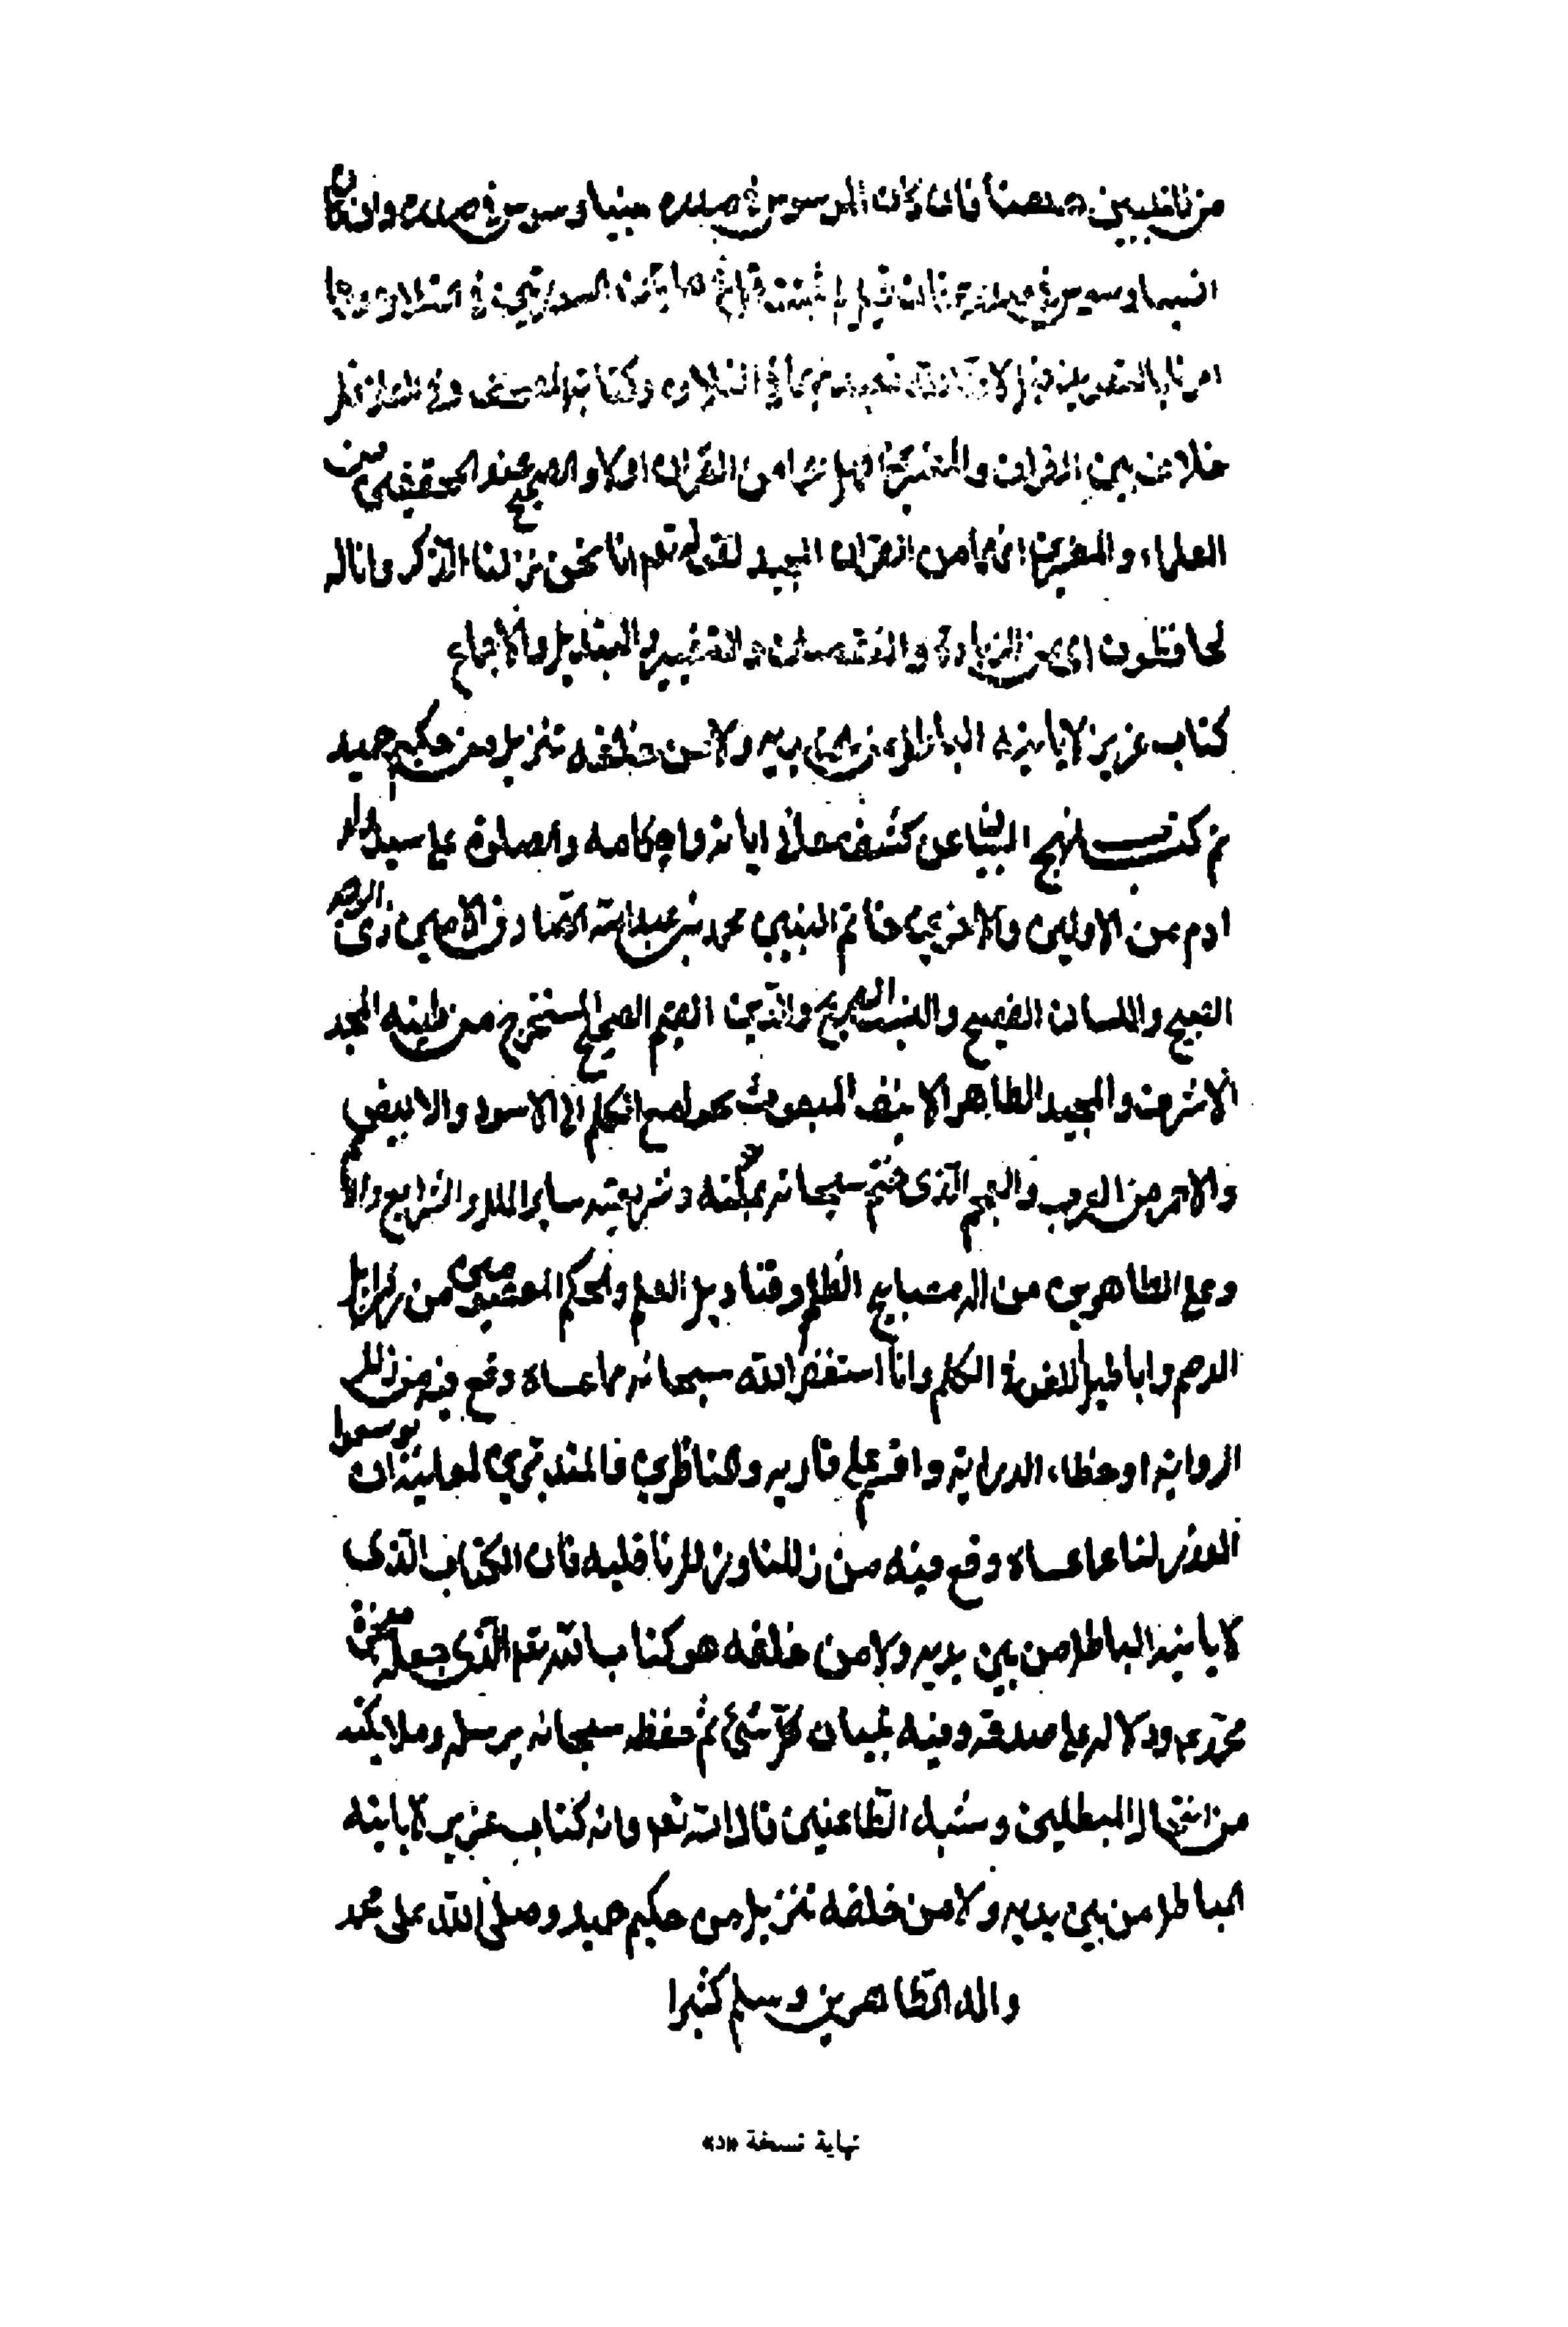 من ناحيتين فان كان الموسوس في صدره جنيا وسوس في صدره وان كان
انسيا وسوس فان قيل في التلاوة
في التلاوه وكتابة المصحف
خلاف بين القراء والمفسرين هل هما من القران او لا والصحيح عند المحققين من
العلماء والمفسرين انهما من القران المجيد لقوله تع انا نحن نزلنا الذكر وانا له
لحافظون اي من الزيادة والنقصان والتغيير والتبديل والاجماع
كتاب عزيز لا ياتيه الباطل من بين يديه ولا من خلفه تنزيل من حكيم حميد
تم كتاب نهج البيان عن كشف معاني اياته واحكامه والصلوة على سيد ولد
ادم من الاولين والاخرين خاتم النبيين محمد بن عبد الله الصادق الامين ذى الوجه
الصبيح واللسان الفصيح والنسب الصريح والدين القيم الصحيح المستخرج من طينه المجد
الاشرف والمجيد الطاهر الانف المبعوث بجوامع الكلم الى الاسود والابيض
والاحمر من العرب والعجم الذى ختم سبحانه بملته وشريعته ساير الملل والشرايع والا
وعلى الطاهرين من اله مصابيح الظلم وقناديل العلم والحكم المعصومين من رذايل
الوصم واباطيل اللغو في الكلم وانا استغفر الله سبحانه مما عساه وقع فيه من زلل
الرواية او خطاء الدراية واقسم على قاريه والناظرين فالمتدبرين لمعانيه ان يوسعوا
العذر لنا عما عساه وقع فيه من زللنا وزلل ناقليه فان الكتاب الذى
لا ياتيه الباطل من بين يديه ولا من خلفه هو كتاب الله تع الذى جعله معجزة
محمد ع ودلالة على صدقه وفيه تبيان كل شئ ثم حفظه سبحانه برسله وملايكته
من انتحال المبطلين وشبه الطاعنين قال الله تع وانه كتاب عزيز لا ياتيه
الباطل من بين يديه ولا من خلفه تنزيل من حكيم حميد وصلى الله على محمد
واله الطاهرين وسلم كثيرا
نهاية نسخة «د»